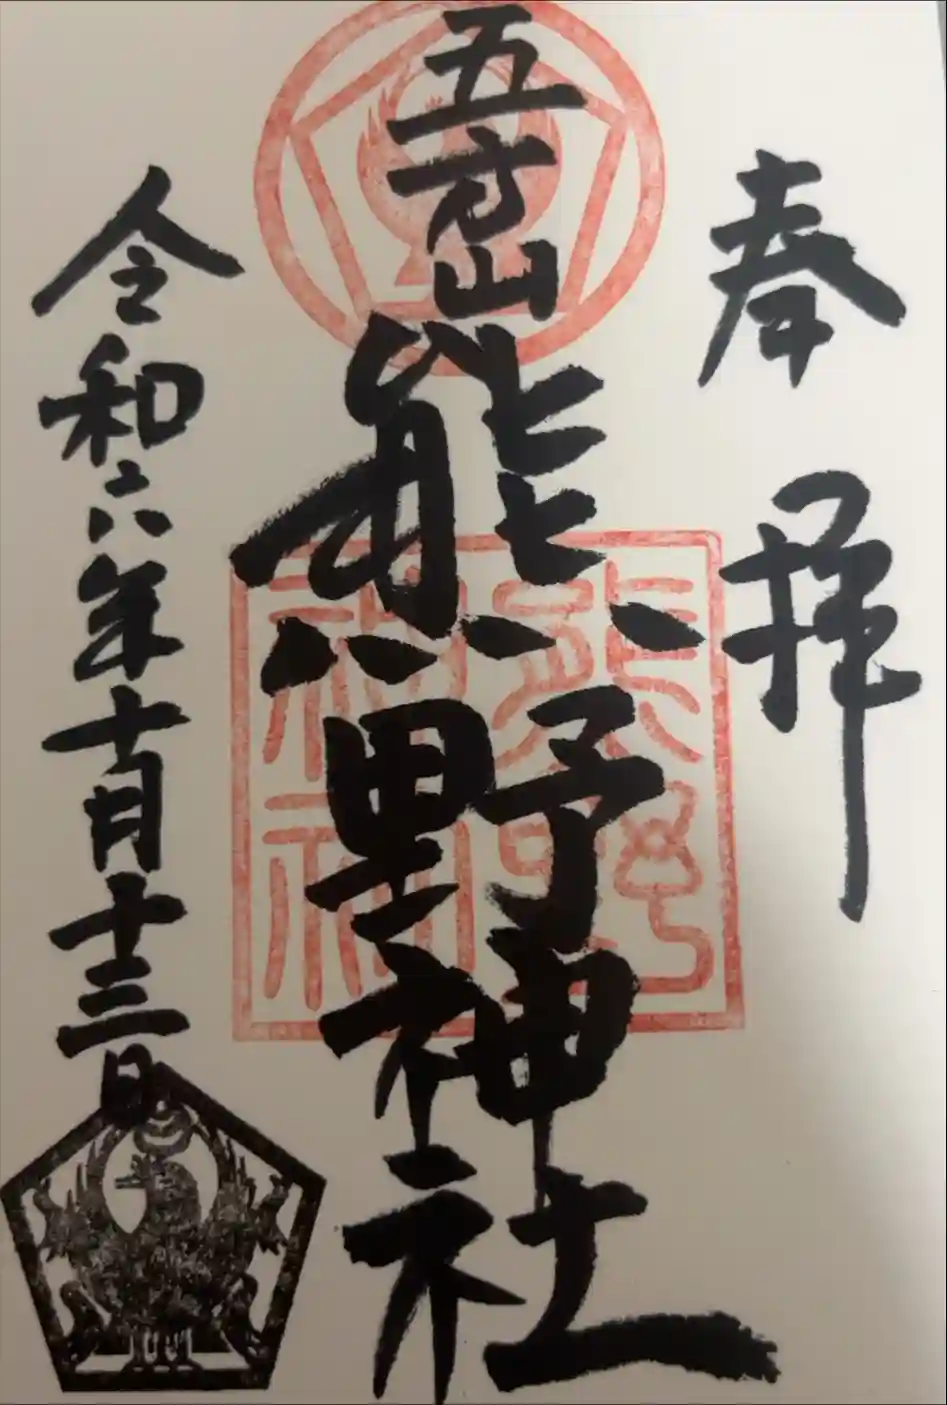 奉拝
五方山
熊野神社
令和六年十月十三日
熊野
神社